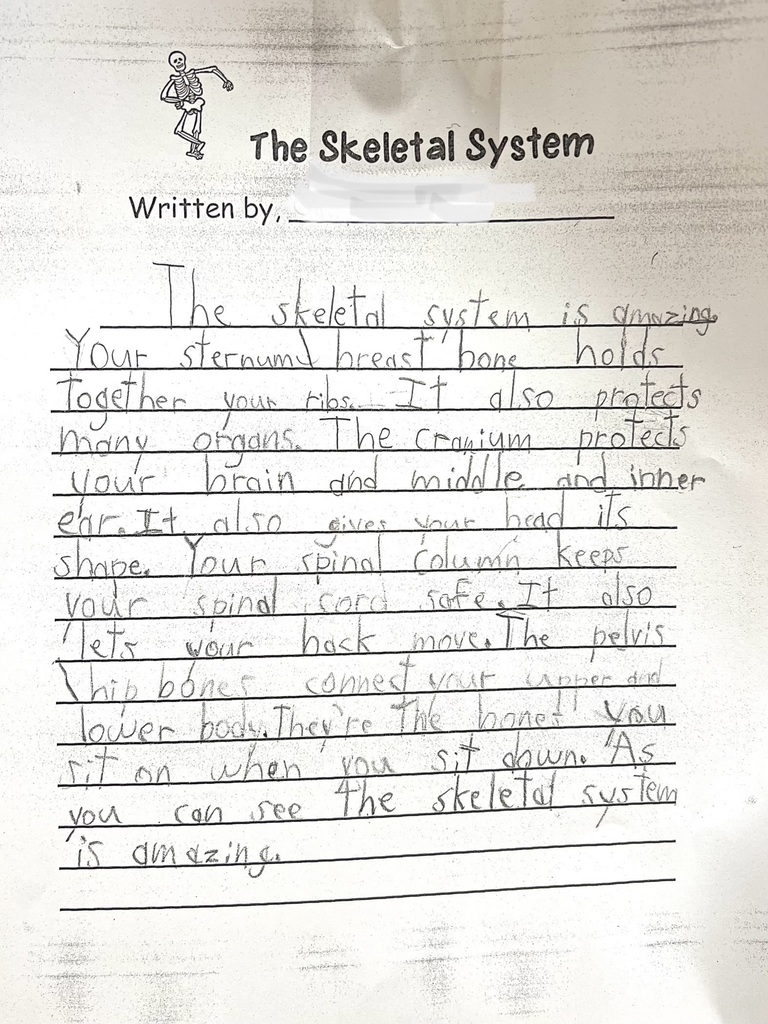 The Skeletal System
Written by,
The skeletal system is amazing.
Your sternum\ breast bone holds
together your ribs. It also protects
many organs. The cranium protects
your brain and middle and inner
ear. It also gives your head its
shape. Your spinal column keeps
your spinal cord safe. It also
lets your back move. The pelvis
\hip bones connect your upper and
lower body. They're the bones you
sit on when you sit down. As
you can see the skeletal system
is amazing.